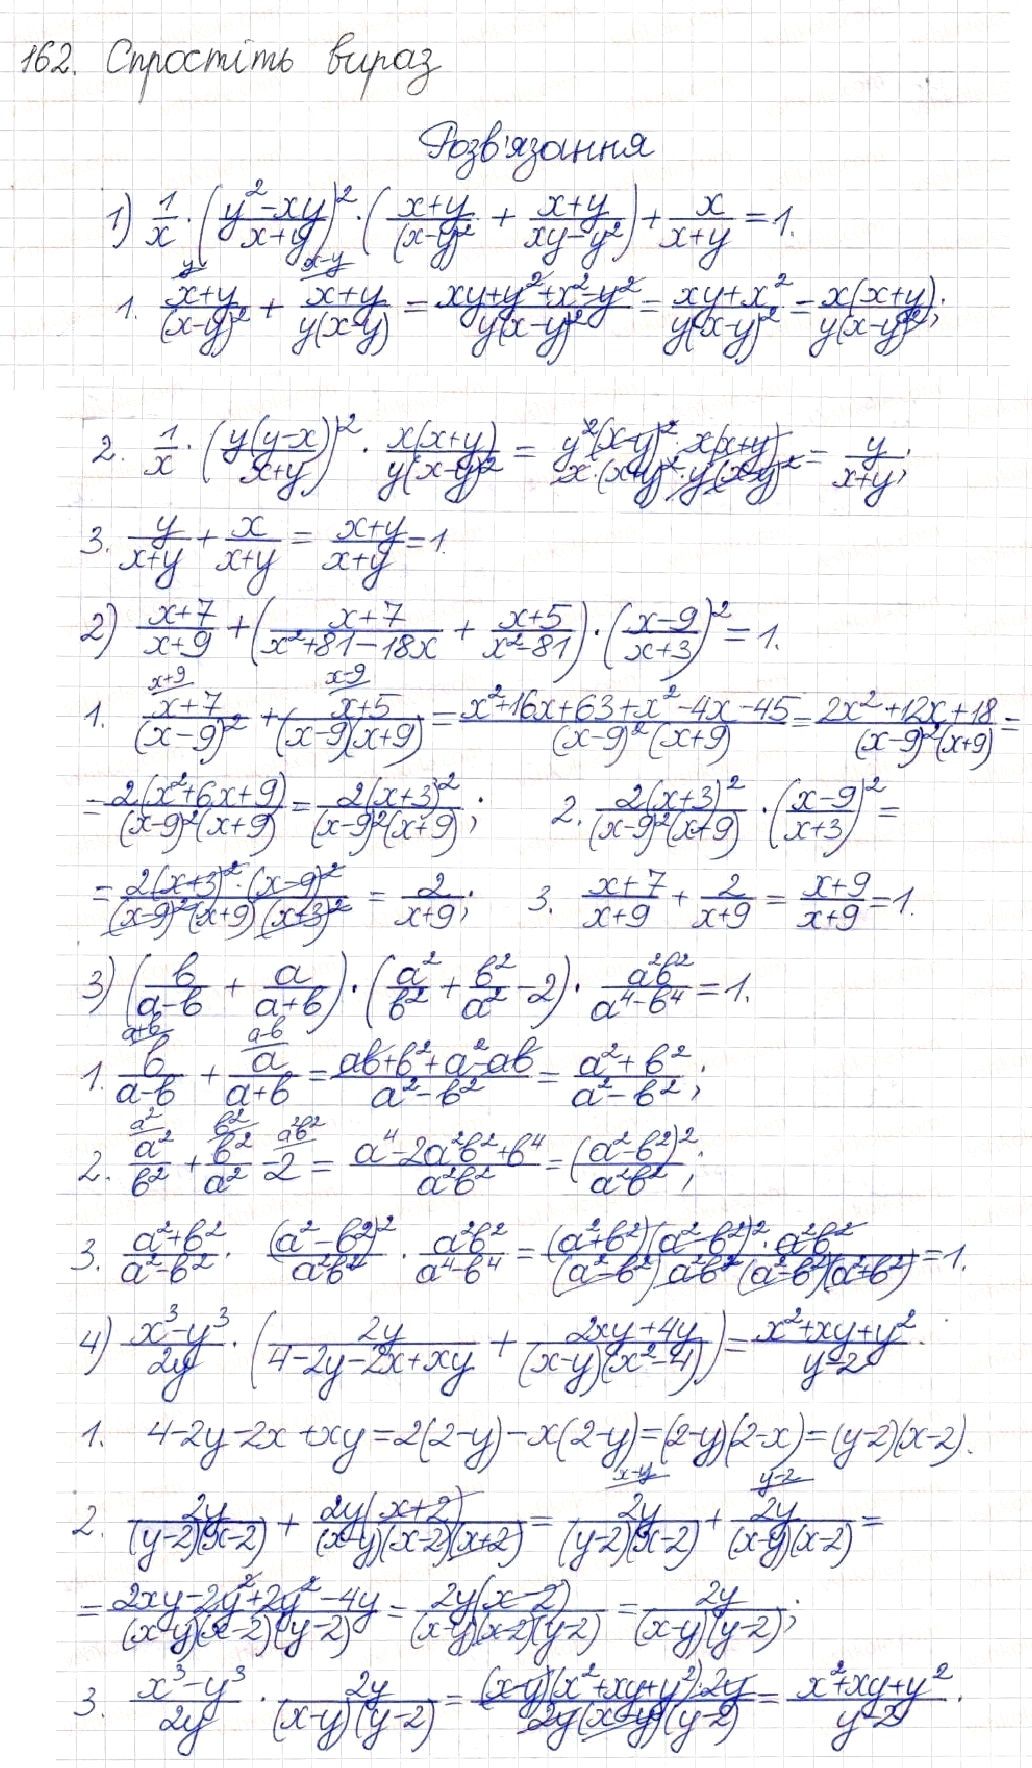 162. Спростіть вираз
Розв'язання
1) 1/x · ((y²-xy)/(x+y))² · ((x+y)/(x-y)² + (x+y)/(xy-y²)) + x/(x+y) = 1.
1. (x+y)/(x-y)² (y) + (x+y)/(y(x-y)) (x-y) = (xy+y²+x²-y²)/(y(x-y)²) = (xy+x²)/(y(x-y)²) = x(x+y)/(y(x-y)²);
2. 1/x · (y(y-x)/(x+y))² · x(x+y)/(y(x-y)²) = (y²(x-y)²·x(x+y))/(x·(x+y)²·y(x-y)²) = y/(x+y);
3. y/(x+y) + x/(x+y) = (x+y)/(x+y) = 1.
2) (x+7)/(x+9) + ((x+7)/(x²+81-18x) + (x+5)/(x²-81)) · ((x-9)/(x+3))² = 1.
1. (x+7)/(x-9)² (x+9) + (x+5)/((x-9)(x+9)) (x-9) = (x²+16x+63+x²-4x-45)/((x-9)²(x+9)) = (2x²+12x+18)/((x-9)²(x+9)) =
= 2(x²+6x+9)/((x-9)²(x+9)) = 2(x+3)²/((x-9)²(x+9)); 2. 2(x+3)²/((x-9)²(x+9)) · ((x-9)/(x+3))² =
= (2(x+3)²·(x-9)²)/((x-9)²(x+9)(x+3)²) = 2/(x+9); 3. (x+7)/(x+9) + 2/(x+9) = (x+9)/(x+9) = 1.
3) (в/(a-в) + a/(a+в)) · (a²/в² + в²/a² - 2) · a²в²/(a⁴-в⁴) = 1.
1. в/(a-в) (a+в) + a/(a+в) (a-в) = (aв+в²+a²-aв)/(a²-в²) = (a²+в²)/(a²-в²);
2. a²/в² (a²) + в²/a² (в²) - 2 (a²в²) = (a⁴-2a²в²+в⁴)/(a²в²) = (a²-в²)²/(a²в²);
3. (a²+в²)/(a²-в²) · (a²-в²)²/(a²в²) · a²в²/(a⁴-в⁴) = ((a²+в²)(a²-в²)²·a²в²)/((a²-в²) a²в² (a²-в²)(a²+в²)) = 1.
4) (x³-y³)/2y · (2y/(4-2y-2x+xy) + (2xy+4y)/((x-y)(x²-4))) = (x²+xy+y²)/(y-2).
1. 4-2y-2x+xy=2(2-y)-x(2-y)=(2-y)(2-x)=(y-2)(x-2).
2. 2y/((y-2)(x-2)) + 2y(x+2)/((x-y)(x-2)(x+2)) = 2y/((y-2)(x-2)) (x-y) + 2y/((x-y)(x-2)) (y-2) =
= (2xy-2y²+2y²-4y)/((x-y)(x-2)(y-2)) = 2y(x-2)/((x-y)(x-2)(y-2)) = 2y/((x-y)(y-2));
3. (x³-y³)/2y · 2y/((x-y)(y-2)) = ((x-y)(x²+xy+y²)·2y)/(2y(x-y)(y-2)) = (x²+xy+y²)/(y-2).